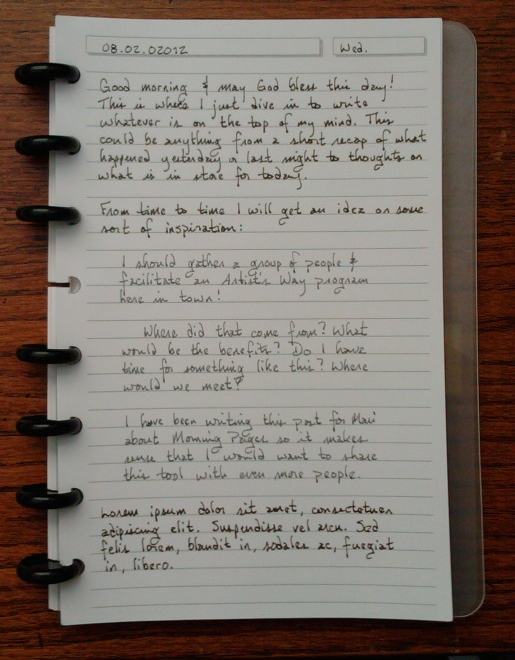 08.02.02012
Wed.
Good morning & may God bless this day!
This is where I just dive in to write
whatever is on the top of my mind. This
could be anything from a short recap of what
happened yesterday or last night to thoughts on
what is in store for today.
From time to time I will get an idea or some
sort of inspiration:
I should gather a group of people &
facilitate an Artist's Way program
here in town!
Where did that come from? What
would be the benefits? Do I have
time for something like this? Where
would we meet?
I have been writing this post for
about Morning Pages so it makes
sense that I would want to share
this tool with even more people.
Lorem ipsum dolor sit amet, consectetuer
adipiscing elit. Suspendisse vel arcu. Sed
felis lorem, blandit in, sodales ac, fuegiat
in, libero.